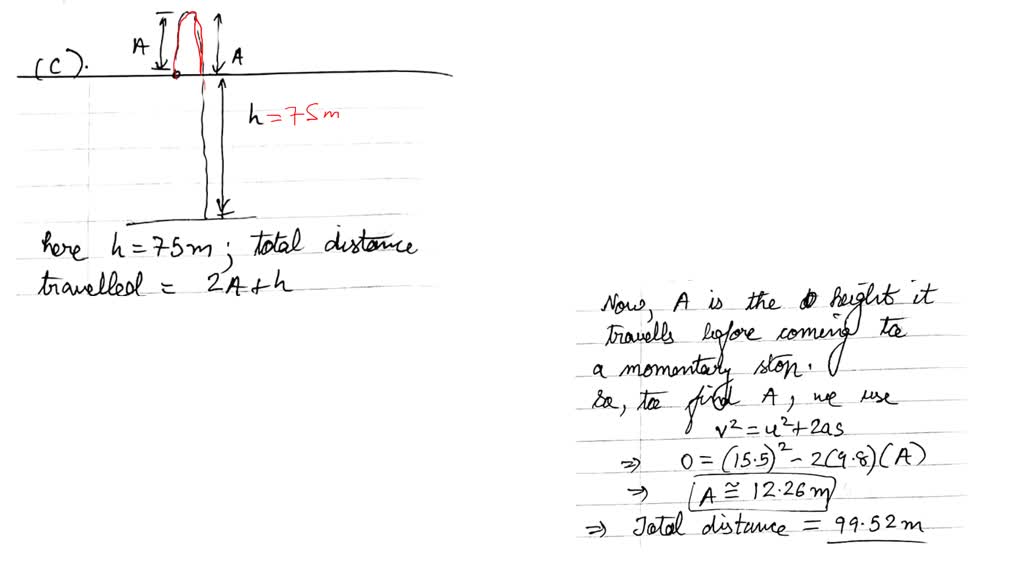 (C).
A
A
h = 75m
here h = 75m; total distance
travelled = 2A + h
Now, A is the height it
travells before coming to
a momentary stop.
So, to find A, we use
v² = u² + 2as
⇒ 0 = (15.5)² - 2(9.8)(A)
⇒ A ≅ 12.26 m
⇒ Total distance = 99.52 m